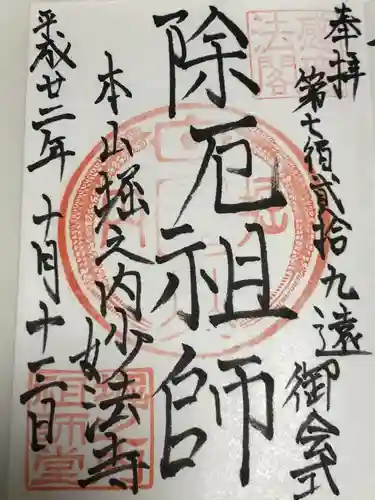 奉拝
第七佰貳拾九遠 御会式
除厄祖師
本山堀之内妙法寺
平成廿二年十月十三日